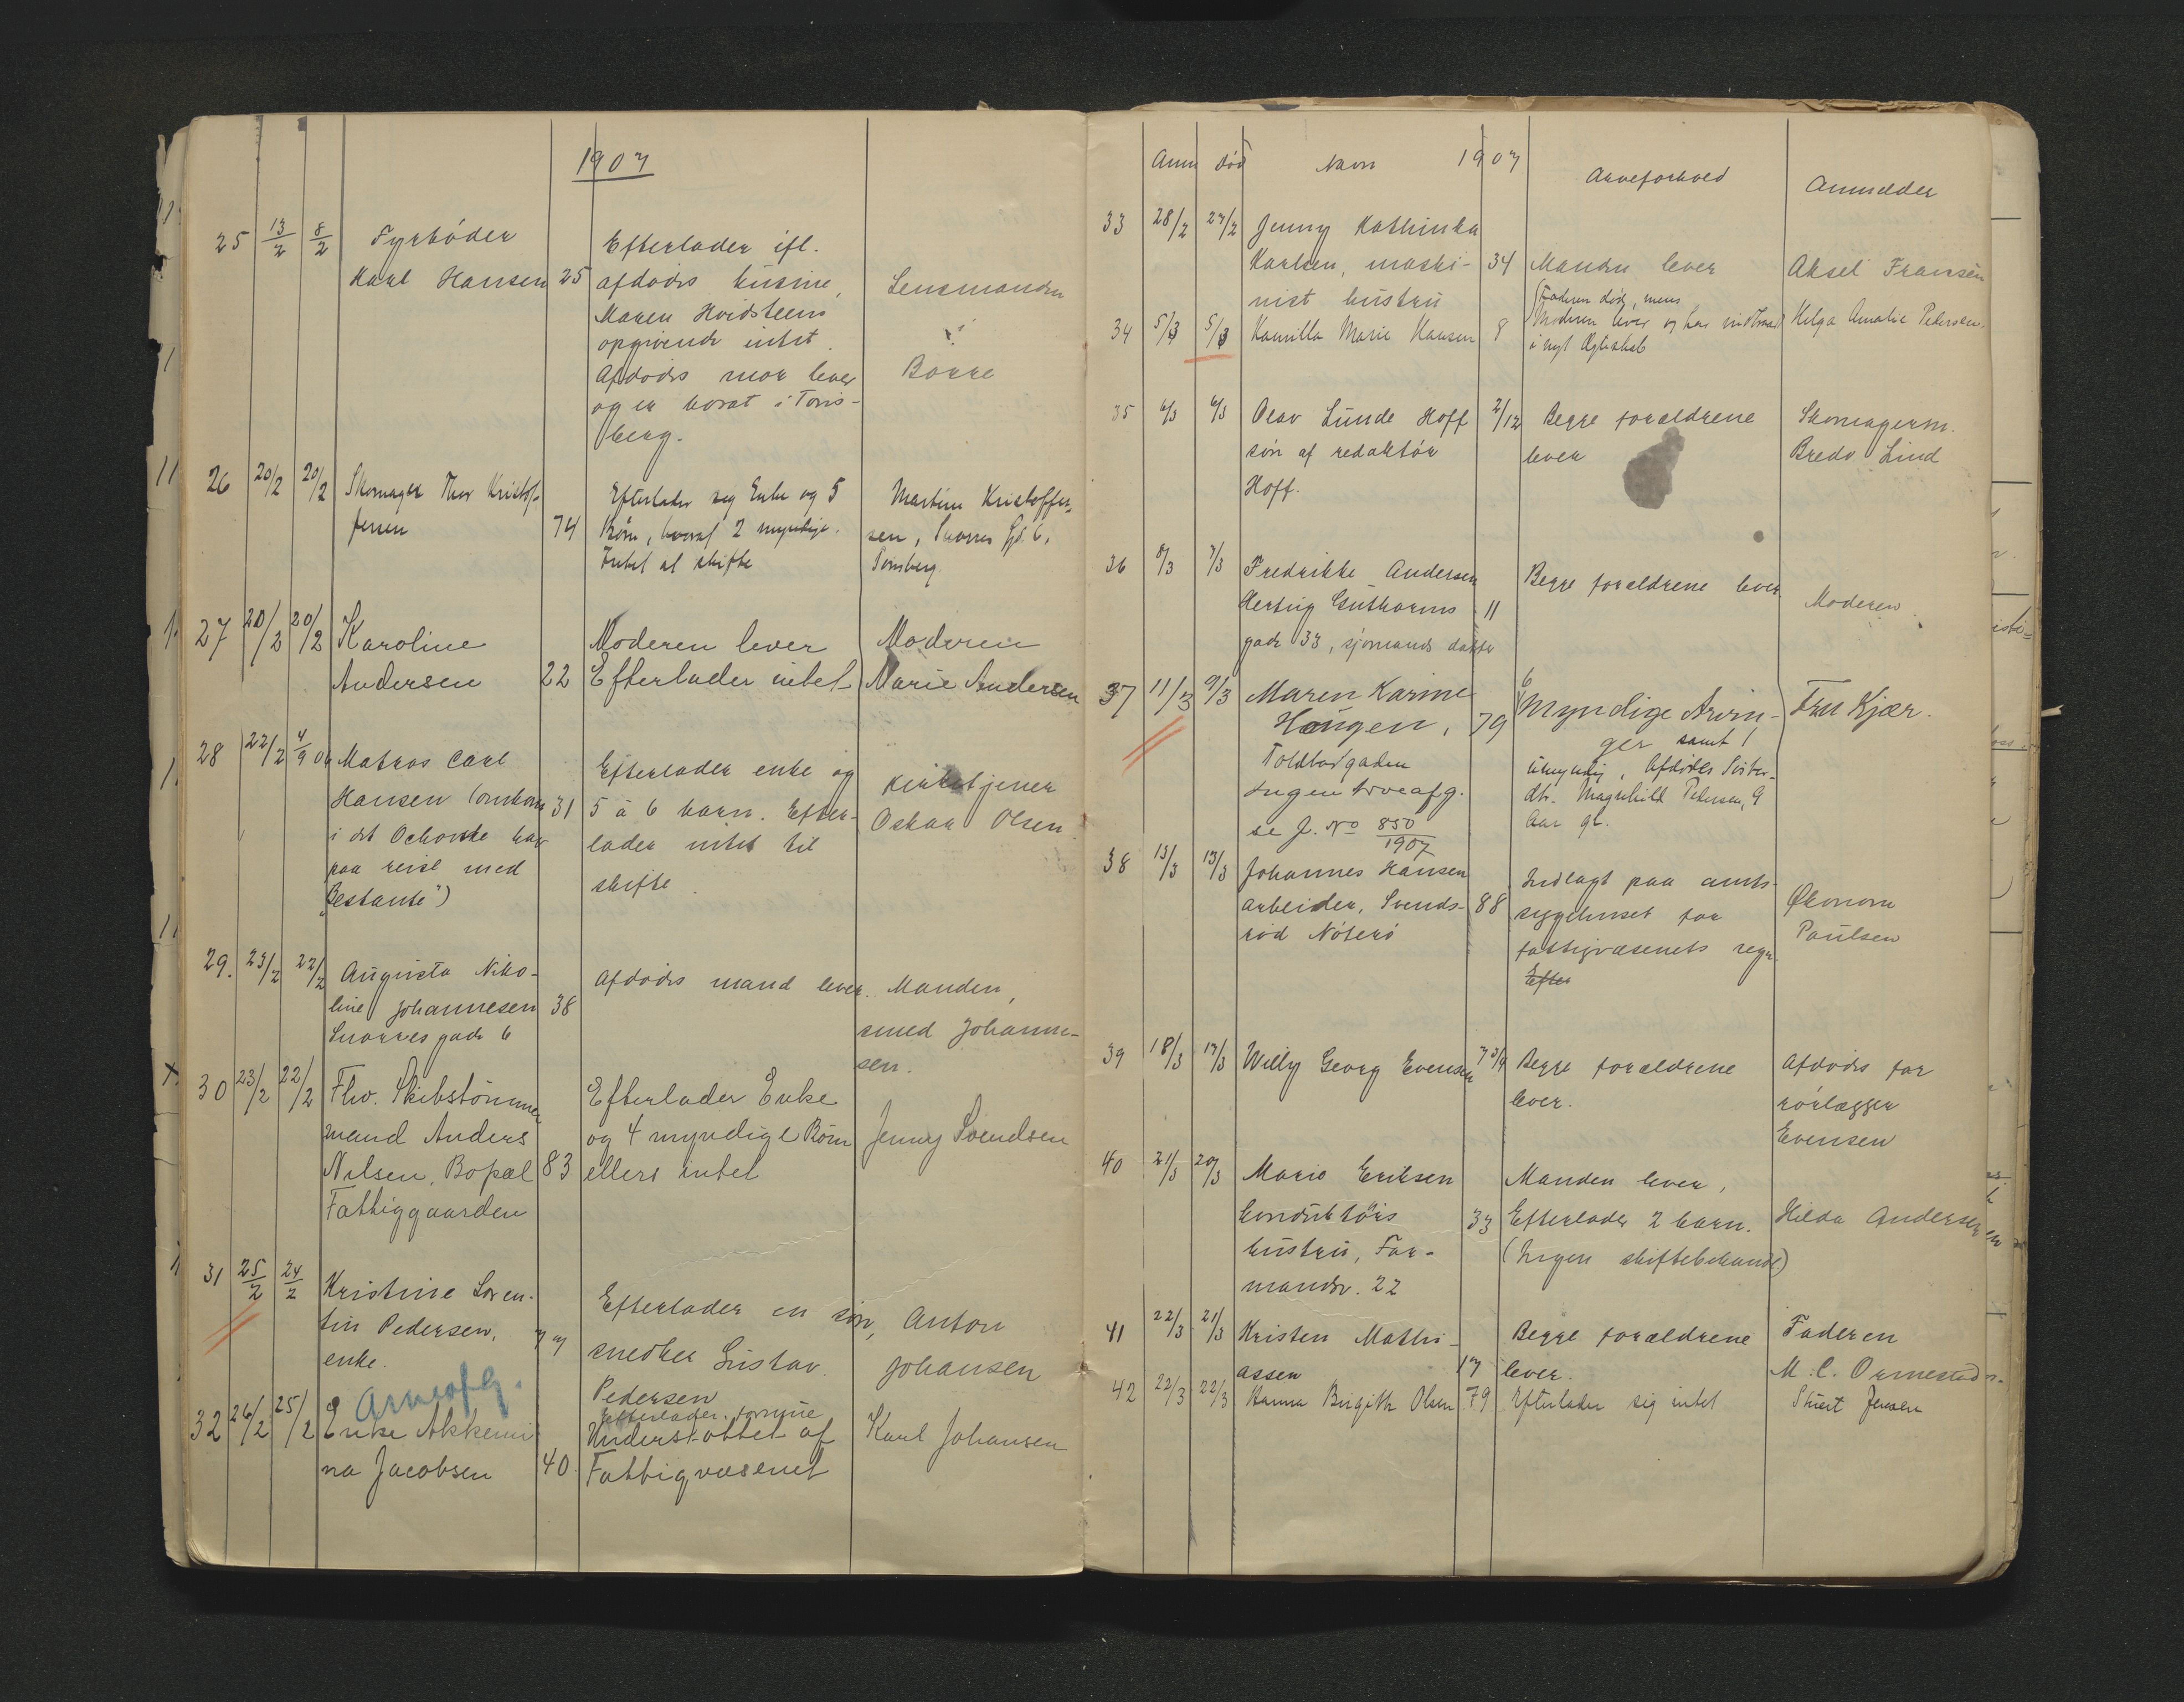 1907
25 13/2 8/2 Fyrbøder
Karl Hansen 25
Efterlader ifl.
afdødes kusine,
Maren Hvidsteens
opgivende intet.
Afdødes mor lever
og er bosat i Tøns-
berg.
Lensmanden
i
Borre
26 20/2 20/2 Skomager Thor Kristof-
fersen 74
Efterlader sig Enke og 5
Børn, hvoraf 2 myndige.
Intet at skifte
Martin Kristoffer-
sen, Snorres Gd. 6,
Tønsberg
27 20/2 20/2 Karoline
Andersen 22
Moderen lever
Efterlader intet
Moderen
Marie Andersen
28 22/2 4/9 06 Matros Carl
Hansen (omkom 31
i det Ochotske hav
paa reise med
"Bestante")
Efterlader enke og
5 à 6 barn. Efter-
lader intet til
skifte.
Kirketjener
Oskar Olsen.
29. 23/2 22/2 Augusta Niko-
line Johannesen 38
Snorresgade 6
Afdødes mand lever.
Manden,
smed Johanne-
sen.
30 23/2 22/2 Fhv. Skibstømmer
mand Anders
Nilsen, Bopæl 83
Fattiggaarden
Efterlader Enke
og 4 myndige Børn
ellers intet
Jenny Svendsen
31 25/2 24/2 Kristine Loren-
tin Pedersen, 77
enke.
Arveafg.
Efterlader en søn,
snedker Gustav
Pedersen
Anton
Johansen
32 26/2 25/2 Enke Akkemi
na Jacobsen 40
Efterlader
Understøttet af
Fattigvæsenet
Karl Johansen
Anm død Navn 1907 Arveforhold Anmelder
33 28/2 27/2 Jenny Kathinka
Karlsen, maski- 34
nist hustru
Manden lever
Aksel Fransèn
34 5/3 5/3 Kamilla Marie Hansen 8
(Faderen død, mens
Moderen lever og har indtraad
i nyt Ægteskab
Helga Amalie Pedersen.
35 6/3 6/3 Olav Lunde Hoff 2/12
søn af redaktør
Hoff.
Begge forældrene
lever
Skomagerm.
Bredo Lind
36 8/3 7/3 Fredrikke Andersen
Hertug Guthorms 11
gade 33, sjømands datter
Begge forældrene lever
Moderen.
37 11/3 9/3 Maren Karine
Haugen, 79
Toldbodgaden
Ingen Arveafg.
se J. No 850/1907
6
Myndige Arvin-
ger samt 1
umyndig, Afdødes Søster-
dtr. Magnhild Pedersen, 9
Aar gl.
Fru Kjær.
38 13/3 13/3 Johannes Hansen
arbeider, Svends- 88
rød Nøterø
Indlagt paa amts-
sygehuset for
fattigvæsenets regn.
Efter
Økonom
Paulsen
39 18/3 17/3 Willy Georg Evensen 7 3/4
Begge forældrene
lever.
Afdødes far
rørlægger
Evensen
40 21/3 20/3 Marie Eriksen
konduktørs 33
hustru, Far-
mandv. 22
Manden lever,
Efterlader 2 barn.
(Ingen skiftebehandl)
Hilda Andersen
41 22/3 21/3 Kristen Mathi-
assen 17
Begge forældrene
lever.
Faderen
M. C. Ormestad
42 22/3 22/3 Hanna Birgitte Olsen 79
Efterlader sig intet
Jensen